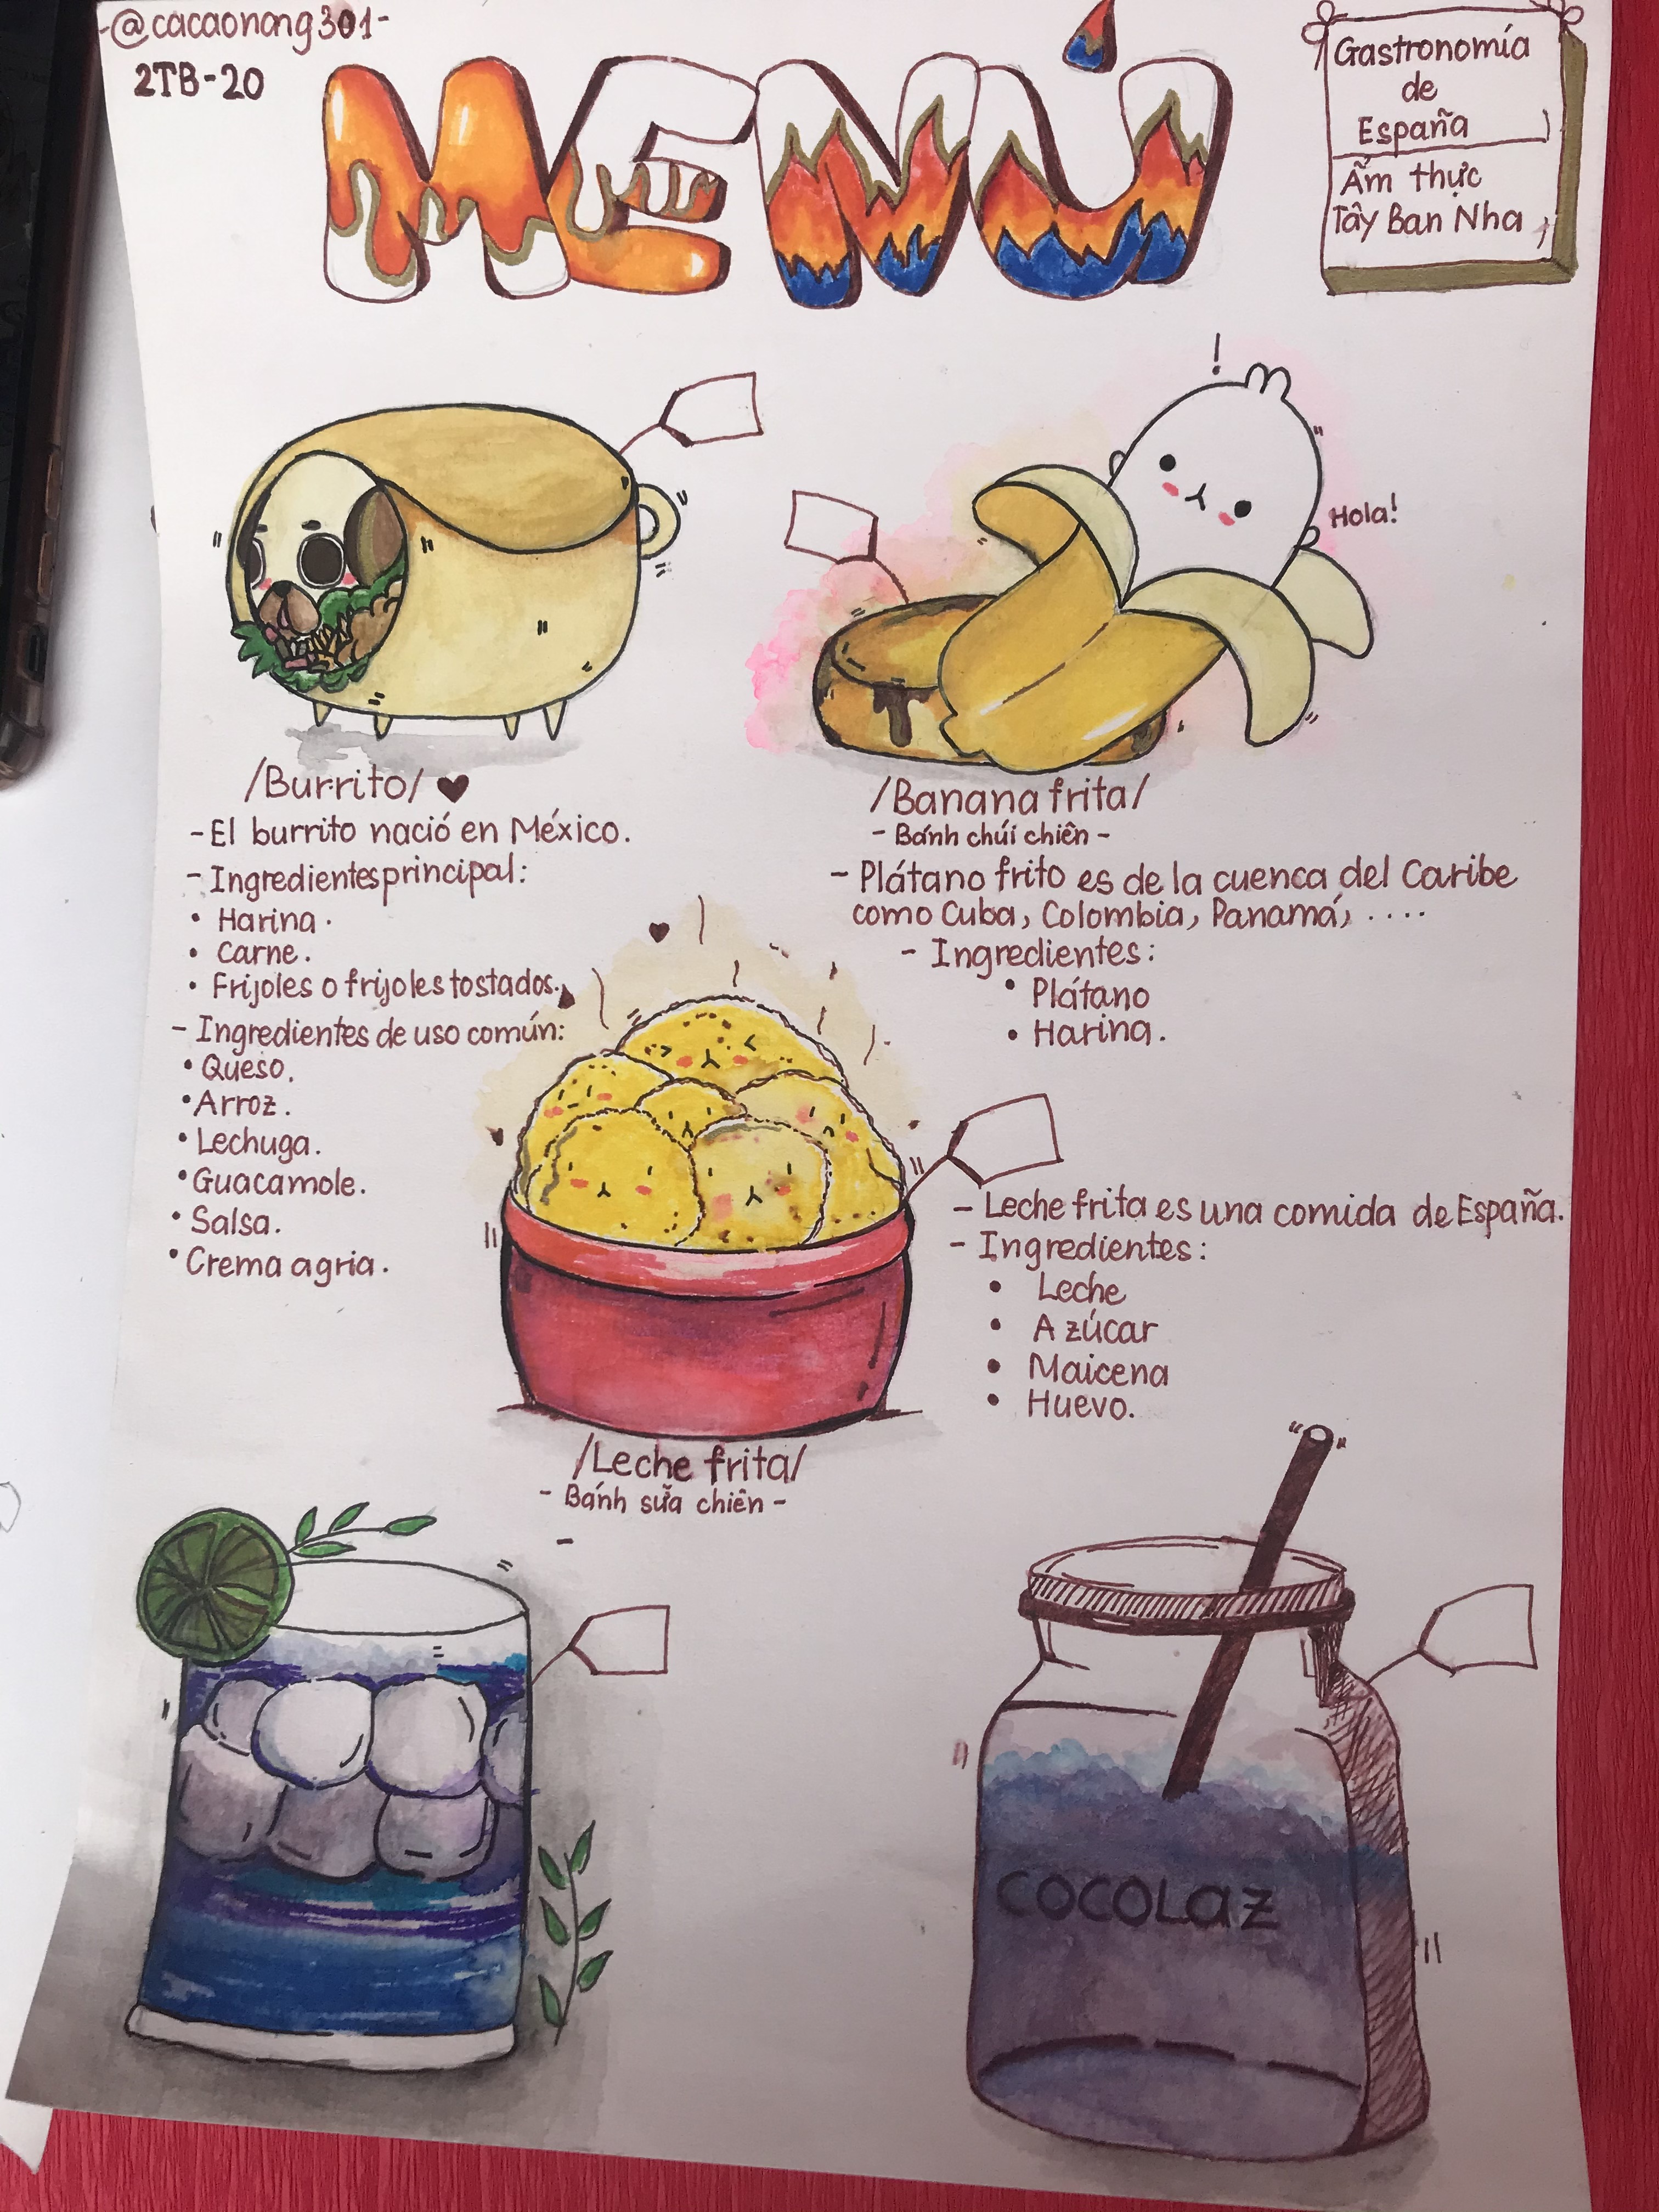 -@cacaonong301-
2TB-20
MENÚ
Gastronomía
de
España
Ẩm thực
Tây Ban Nha
!
Hola!
/Burrito/ ♥
- El burrito nació en México.
- Ingredientes principal:
• Harina.
• Carne.
• Frijoles o frijoles tostados.
- Ingredientes de uso común:
• Queso.
• Arroz.
• Lechuga.
• Guacamole.
• Salsa.
• Crema agria.
/Banana frita/
- Bánh chúi chiên -
- Plátano frito es de la cuenca del Caribe
como Cuba, Colombia, Panamá, ....
- Ingredientes:
• Plátano
• Harina.
- Leche frita es una comida de España.
- Ingredientes:
• Leche
• Azúcar
• Maicena
• Huevo.
/Leche frita/
- Bánh sữa chiên -
COCOLaz